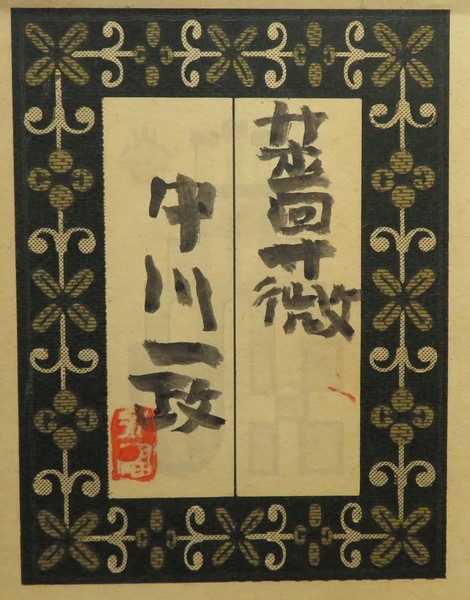 薔薇
中川一政